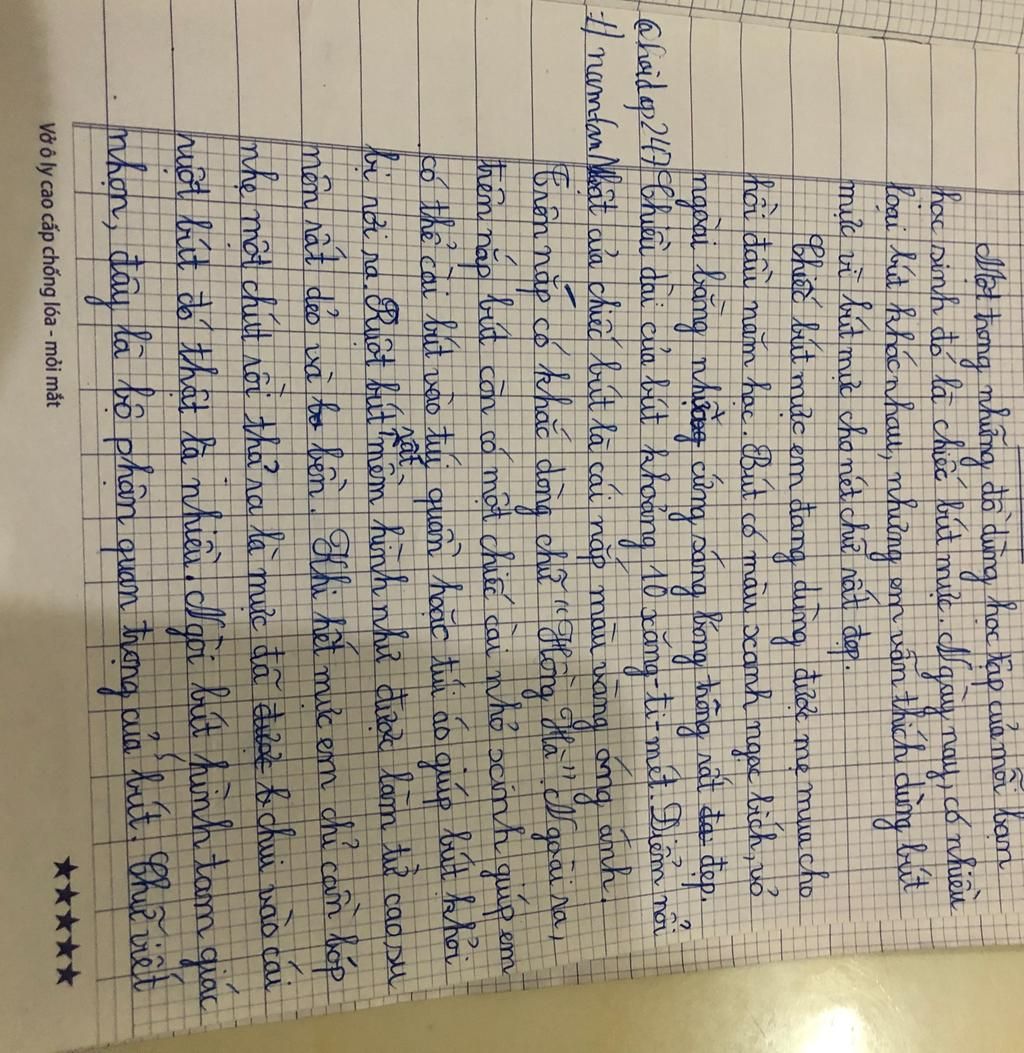 Một trong những đồ dùng học tập của mỗi bạn
học sinh đó là chiếc bút mực. Ngày nay, có nhiều
loại bút khác nhau, nhưng em vẫn thích dùng bút
mực vì bút mực cho nét chữ rất đẹp.
Chiếc bút mực em đang dùng được mẹ mua cho
hồi đầu năm học. Bút có màu xanh ngọc bích, vỏ
ngoài bằng nhựa cứng sáng bóng trông rất đẹp.
@hoidap247 Chiều dài của bút khoảng 10 xăng-ti-mét. Điểm nổi
bật của chiếc bút là cái nắp màu vàng óng ánh.
Trên nắp có khắc dòng chữ "Hồng Hà". Ngoài ra,
trên nắp bút còn có một chiếc cài nhỏ xinh giúp em
có thể cài bút vào túi quần hoặc túi áo giúp bút khỏi
bị rơi ra. Ruột bút rất mềm hình như được làm từ cao su
nên rất dẻo và bền. Khi hết mực em chỉ cần bóp
nhẹ một chút rồi thả ra là mực đã chui vào cái
ruột bút đó thật là nhiều. Ngòi bút hình tam giác
nhọn, đây là bộ phận quan trọng của bút. Chữ viết
Vở ô ly cao cấp chống lóa - mỏi mắt